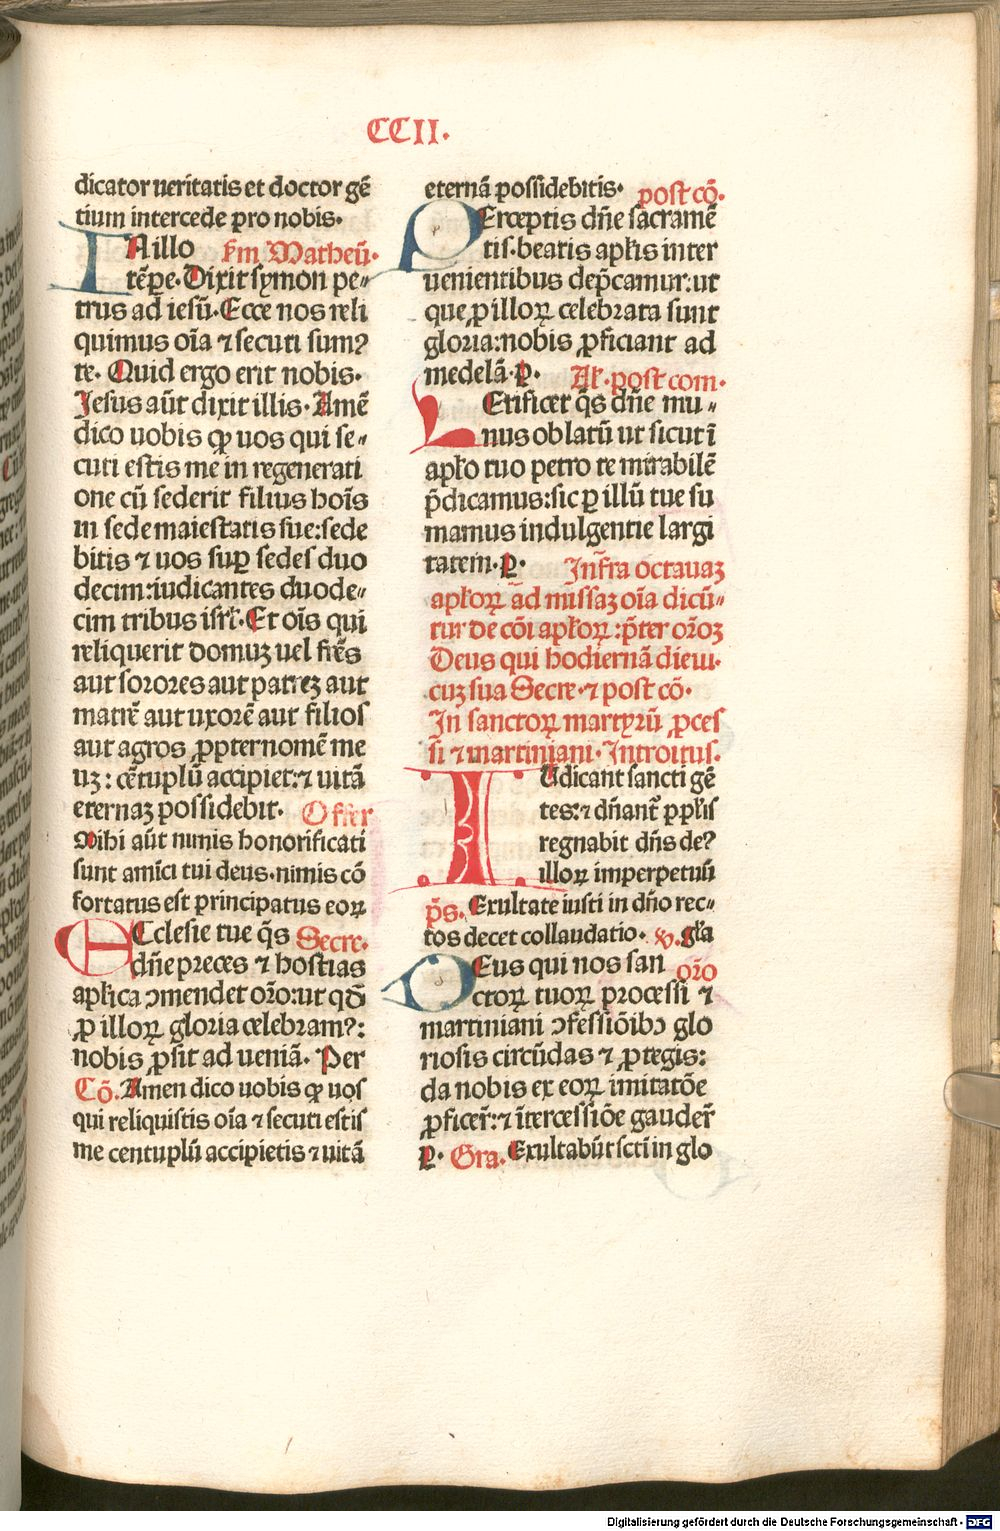 CCII.
dicator ueritatis et doctor gē
tium intercede pro nobis.
IN illo s̄m Matheū.
tēpe. Dixit symon pe⸗
trus ad iesū. Ecce nos reli
quimus oīa ⁊ secuti sumꝰ
te. Quid ergo erit nobis.
Jesus aūt dixit illis. Amē
dico uobis ꝙ uos qui se⸗
cuti estis me in regenerati
one cū sederit filius hoīs
in sede maiestatis sue: sede
bitis ⁊ uos sup sedes duo
decim: iudicantes duode⸗
cim tribus isrl. Et oīs qui
reliquerit domuꝫ uel frēs
aut sorores aut patreꝫ aut
matrē aut uxorē aut filios
aut agros ꝓpter nomē me
uꝫ: cētuplū accipiet: ⁊ uitā
eternaꝫ possidebit. Offer
Mihi aūt nimis honorificati
sunt amīci tui deus. nimis cō
fortatus est principatus eoꝝ
ECclesie tue q̄s Secre.
dn̄e preces ⁊ hostias
aplica ɔmendet orō: ut qđ
ꝓ illoꝝ gloria celebramꝰ:
nobis ꝓsit ad ueniā. Per
Cō. Amen dico uobis ꝙ uos
qui reliquistis oīa ⁊ secuti estis
me centuplū accipietis ⁊ uitā
eternā possidebitis. post cō.
PErceptis dn̄e sacramē
tis. beatis aplis inter
uenientibus dep̄camur: ut
que ꝓ illoꝝ celebrata sunt
gloria: nobis ꝓficiant ad
medelā. P. Al. post com.
LEtificet q̄s dn̄e mu⸗
nus oblatū ut sicut ī
aplo tuo petro te mirabilē
p̄dicamus: sic ꝑ illū tue su
mamus indulgentie largi
tatem. P. Infra octauaꝫ
aploꝝ ad missaꝫ oīa dicū⸗
tur de cōi aploꝝ: p̄ter orōꝫ
Deus qui hodiernā diem.
cuꝫ sua Secre. ⁊ post cō.
In sanctoꝝ martyrū ꝓces
si ⁊ martiniani. Introitus.
IUdicant sancti gē
tes: ⁊ dn̄ant̄ pplis
regnabit dn̄s deꝰ
illoꝝ imperpetuū
p̄s. Exultate iusti in dn̄o rec⸗
tos decet collaudatio. v. gla
DEus qui nos san orō
ctoꝝ tuoꝝ processi ⁊
martiniani ɔfessiōibɔ glo
riosis circūdas ⁊ ꝓtegis:
da nobis ex eoꝝ imitatōe
ꝓficer̄: ⁊ ītercessiōe gauder̄
P. Gra. Exultabūt scti in glo
Digitalisierung gefördert durch die Deutsche Forschungsgemeinschaft - DFG